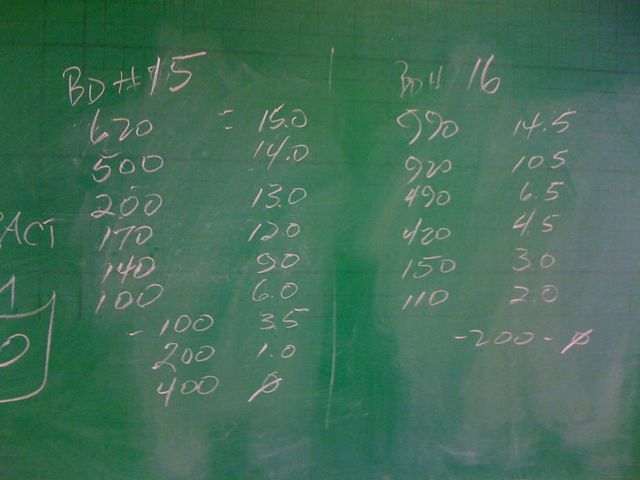 BD # 15
620 = 15.0
500 14.0
200 13.0
170 12.0
140 9.0
100 6.0
- 100 3.5
200 1.0
400 0
BD # 16
990 14.5
920 10.5
490 6.5
420 4.5
150 3.0
110 2.0
- 200 - 0
ACT
1
0